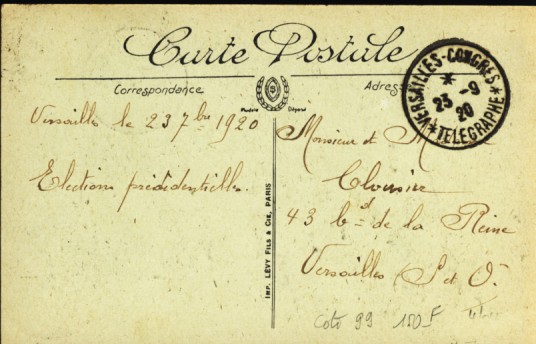 Carte Postale
Correspondance
Modèle Déposé
Adresse
VERSAILLES-CONGRES
23 -9
20
TELEGRAPHE
Versailles le 23 7bre 1920
Elections présidentielles.
IMP. LÉVY FILS & CIE, PARIS
Monsieur et M
43 bd de la Reine
Versailles (S et O.
Coto 99 150 F